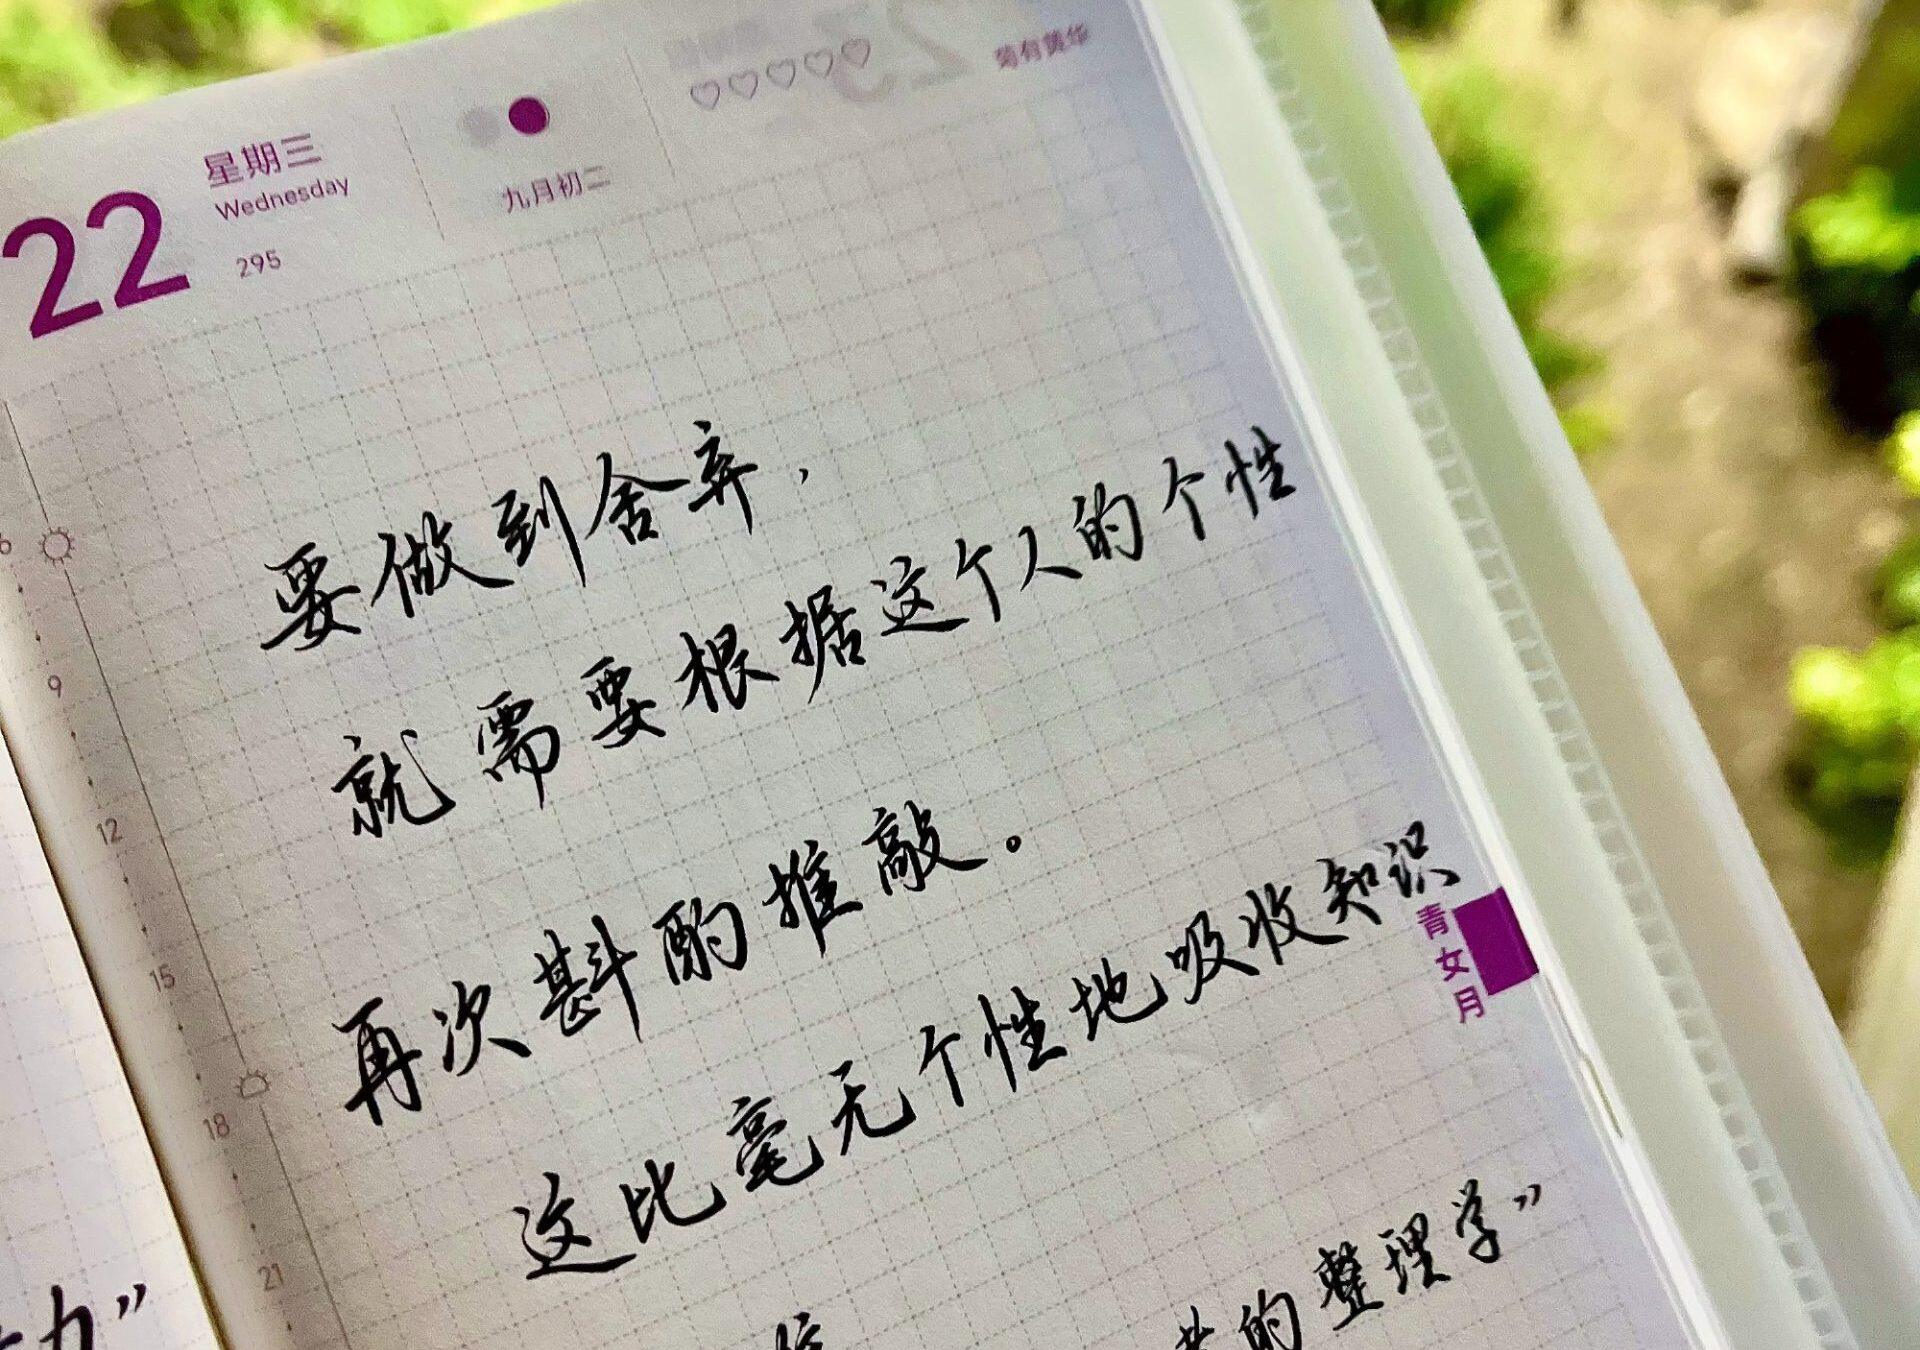 22
星期三
Wednesday
295
九月初二
菊有黄华
要做到舍弃，
就需要根据这个人的个性
再次斟酌推敲。
这比毫无个性地吸收知识
的整理学”
力”
青女月
9
12
15
18
21